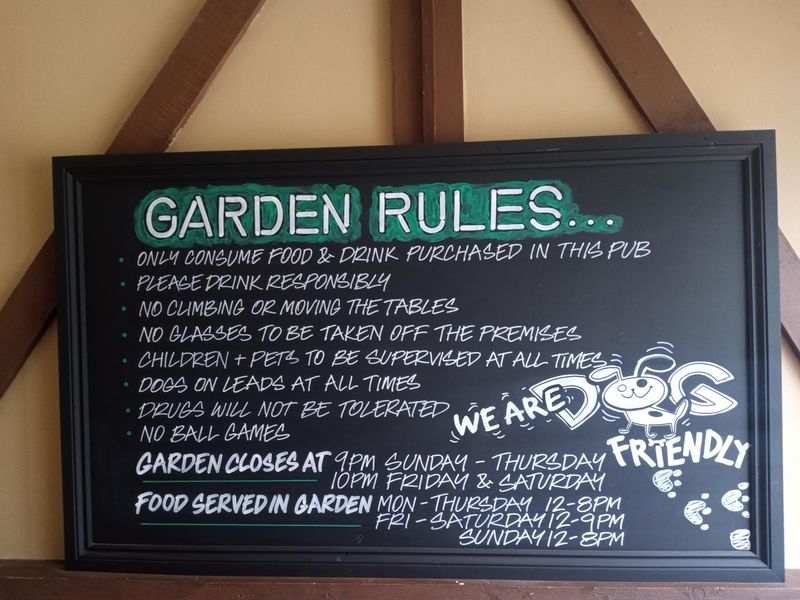 GARDEN RULES...
• ONLY CONSUME FOOD & DRINK PURCHASED IN THIS PUB
• PLEASE DRINK RESPONSIBLY
• NO CLIMBING OR MOVING THE TABLES
• NO GLASSES TO BE TAKEN OFF THE PREMISES
• CHILDREN + PETS TO BE SUPERVISED AT ALL TIMES
• DOGS ON LEADS AT ALL TIMES
• DRUGS WILL NOT BE TOLERATED
• NO BALL GAMES
WE ARE DOG
FRIENDLY
GARDEN CLOSES AT 9PM SUNDAY - THURSDAY
10PM FRIDAY & SATURDAY
FOOD SERVED IN GARDEN MON - THURSDAY 12-8PM
FRI - SATURDAY 12-9PM
SUNDAY 12-8PM